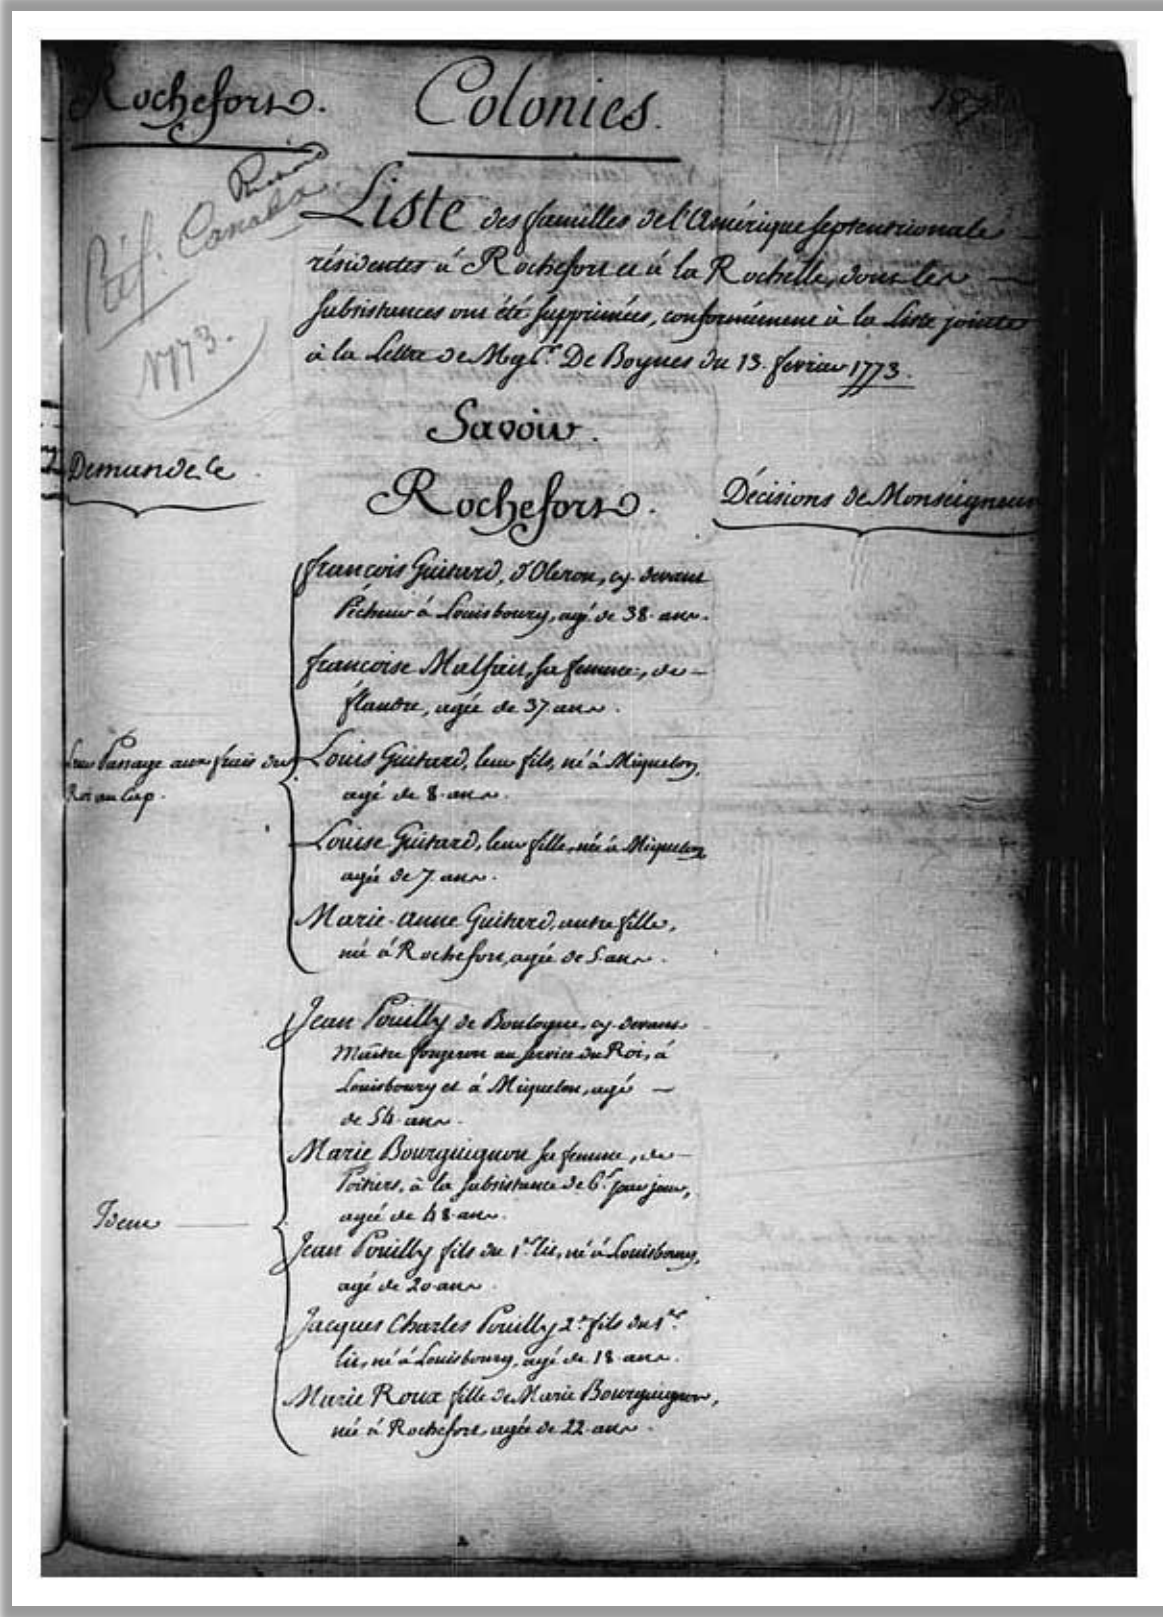 Rochefort.
Colonies.
Réf. Canada
1773.
Liste des familles de l'Amérique septentrionale
résidentes à Rochefort et à la Rochelle, dont les
subsistances ont été supprimées, conformément à la Liste jointe
à la Lettre de Mgr. De Boynes du 13. fevrier 1773.
Savoir.
Demande de
Rochefort.
Décisions de Monseigneur
françois Guitard, d'Oleron, cy. devant
Pécheur à Louisbourg, agé de 38. ans.
francoise Malfait, sa femme, de
flandre, agée de 37 ans.
Leur Passage aux frais du
Roi au Cap.
Louis Guitard, leur fils, né à Miquelon,
agé de 8. ans.
Louise Guitard, leur fille, née à Miquelon
agée de 7. ans.
Marie-anne Guitard, autre fille,
née à Rochefort, agée de 5. ans.
Jean Pouilly de Boulogne, cy. devant
Maître forgeron au service du Roi, à
Louisbourg et à Miquelon, agé
de 54. ans.
Marie Bourguignon sa femme, de
Poitiers, à la subsistance de 6.s par jour,
agée de 48. ans.
Idem
Jean Pouilly fils du 1.er lit, né à Louisbourg,
agé de 20 ans.
Jacques Charles Pouilly 2.e fils du 1.er
lit, né à Louisbourg, agé de 18. ans.
Marie Roux fille de Marie Bourguignon,
née à Rochefort, agée de 22. ans.